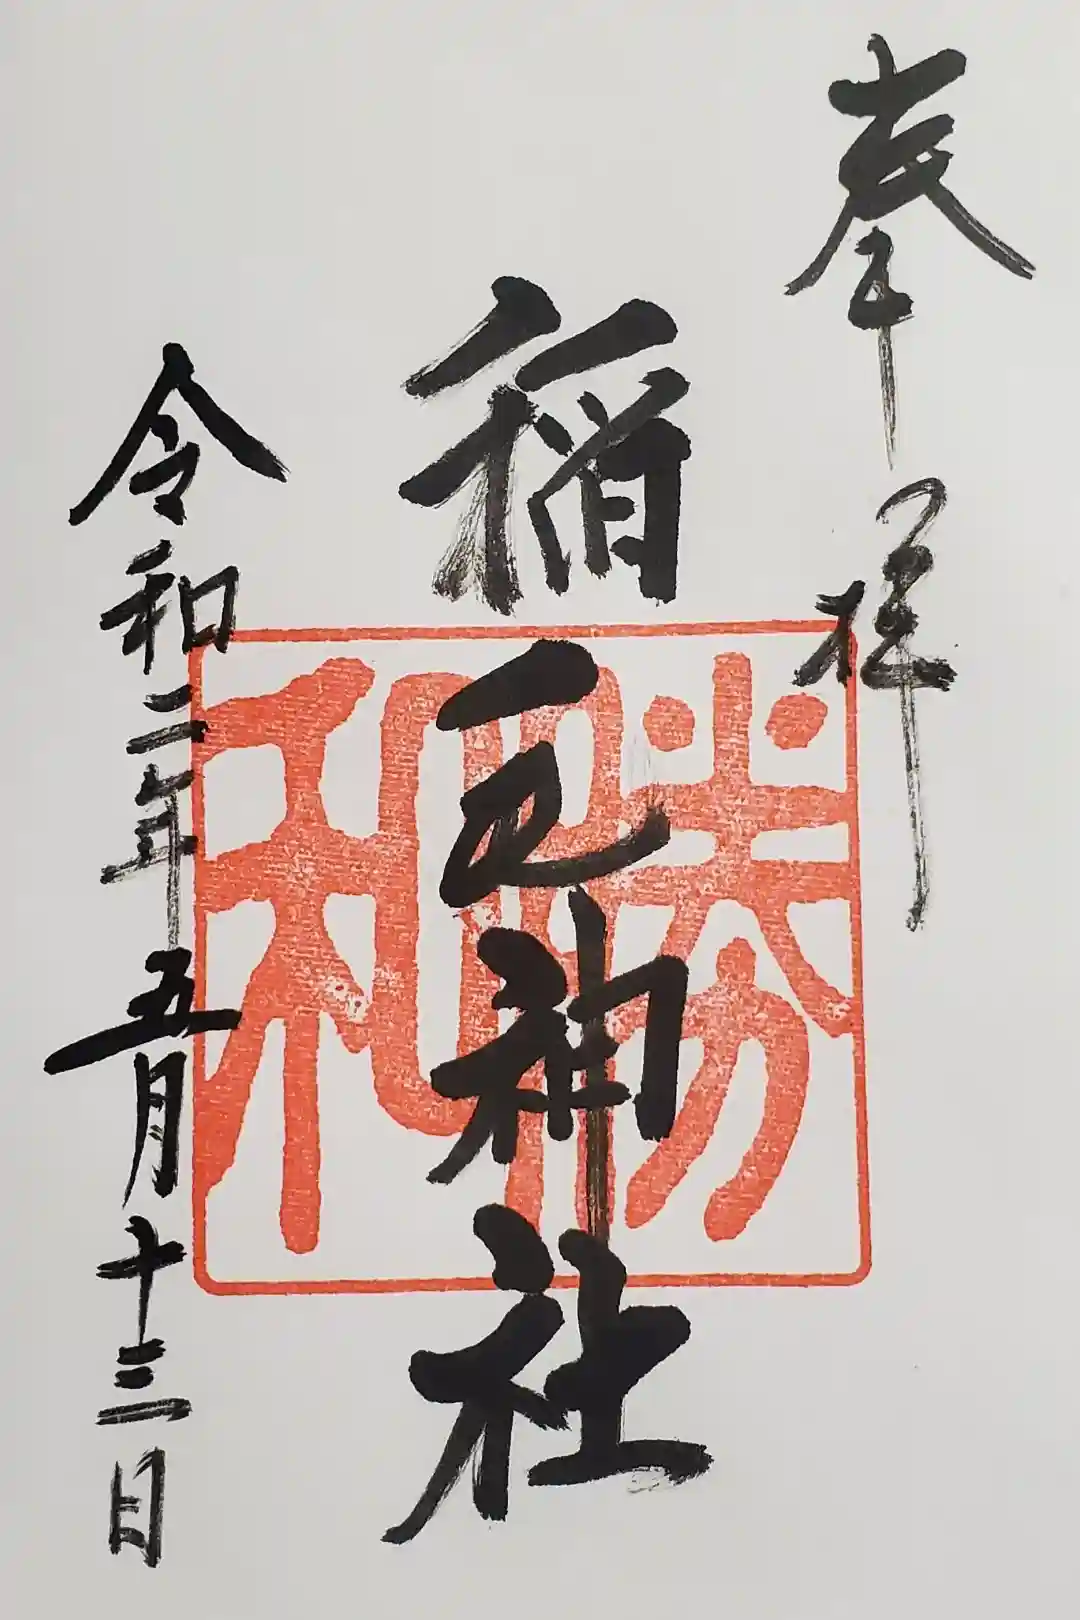 奉拝
稲毛神社
令和二年五月十三日
勝和